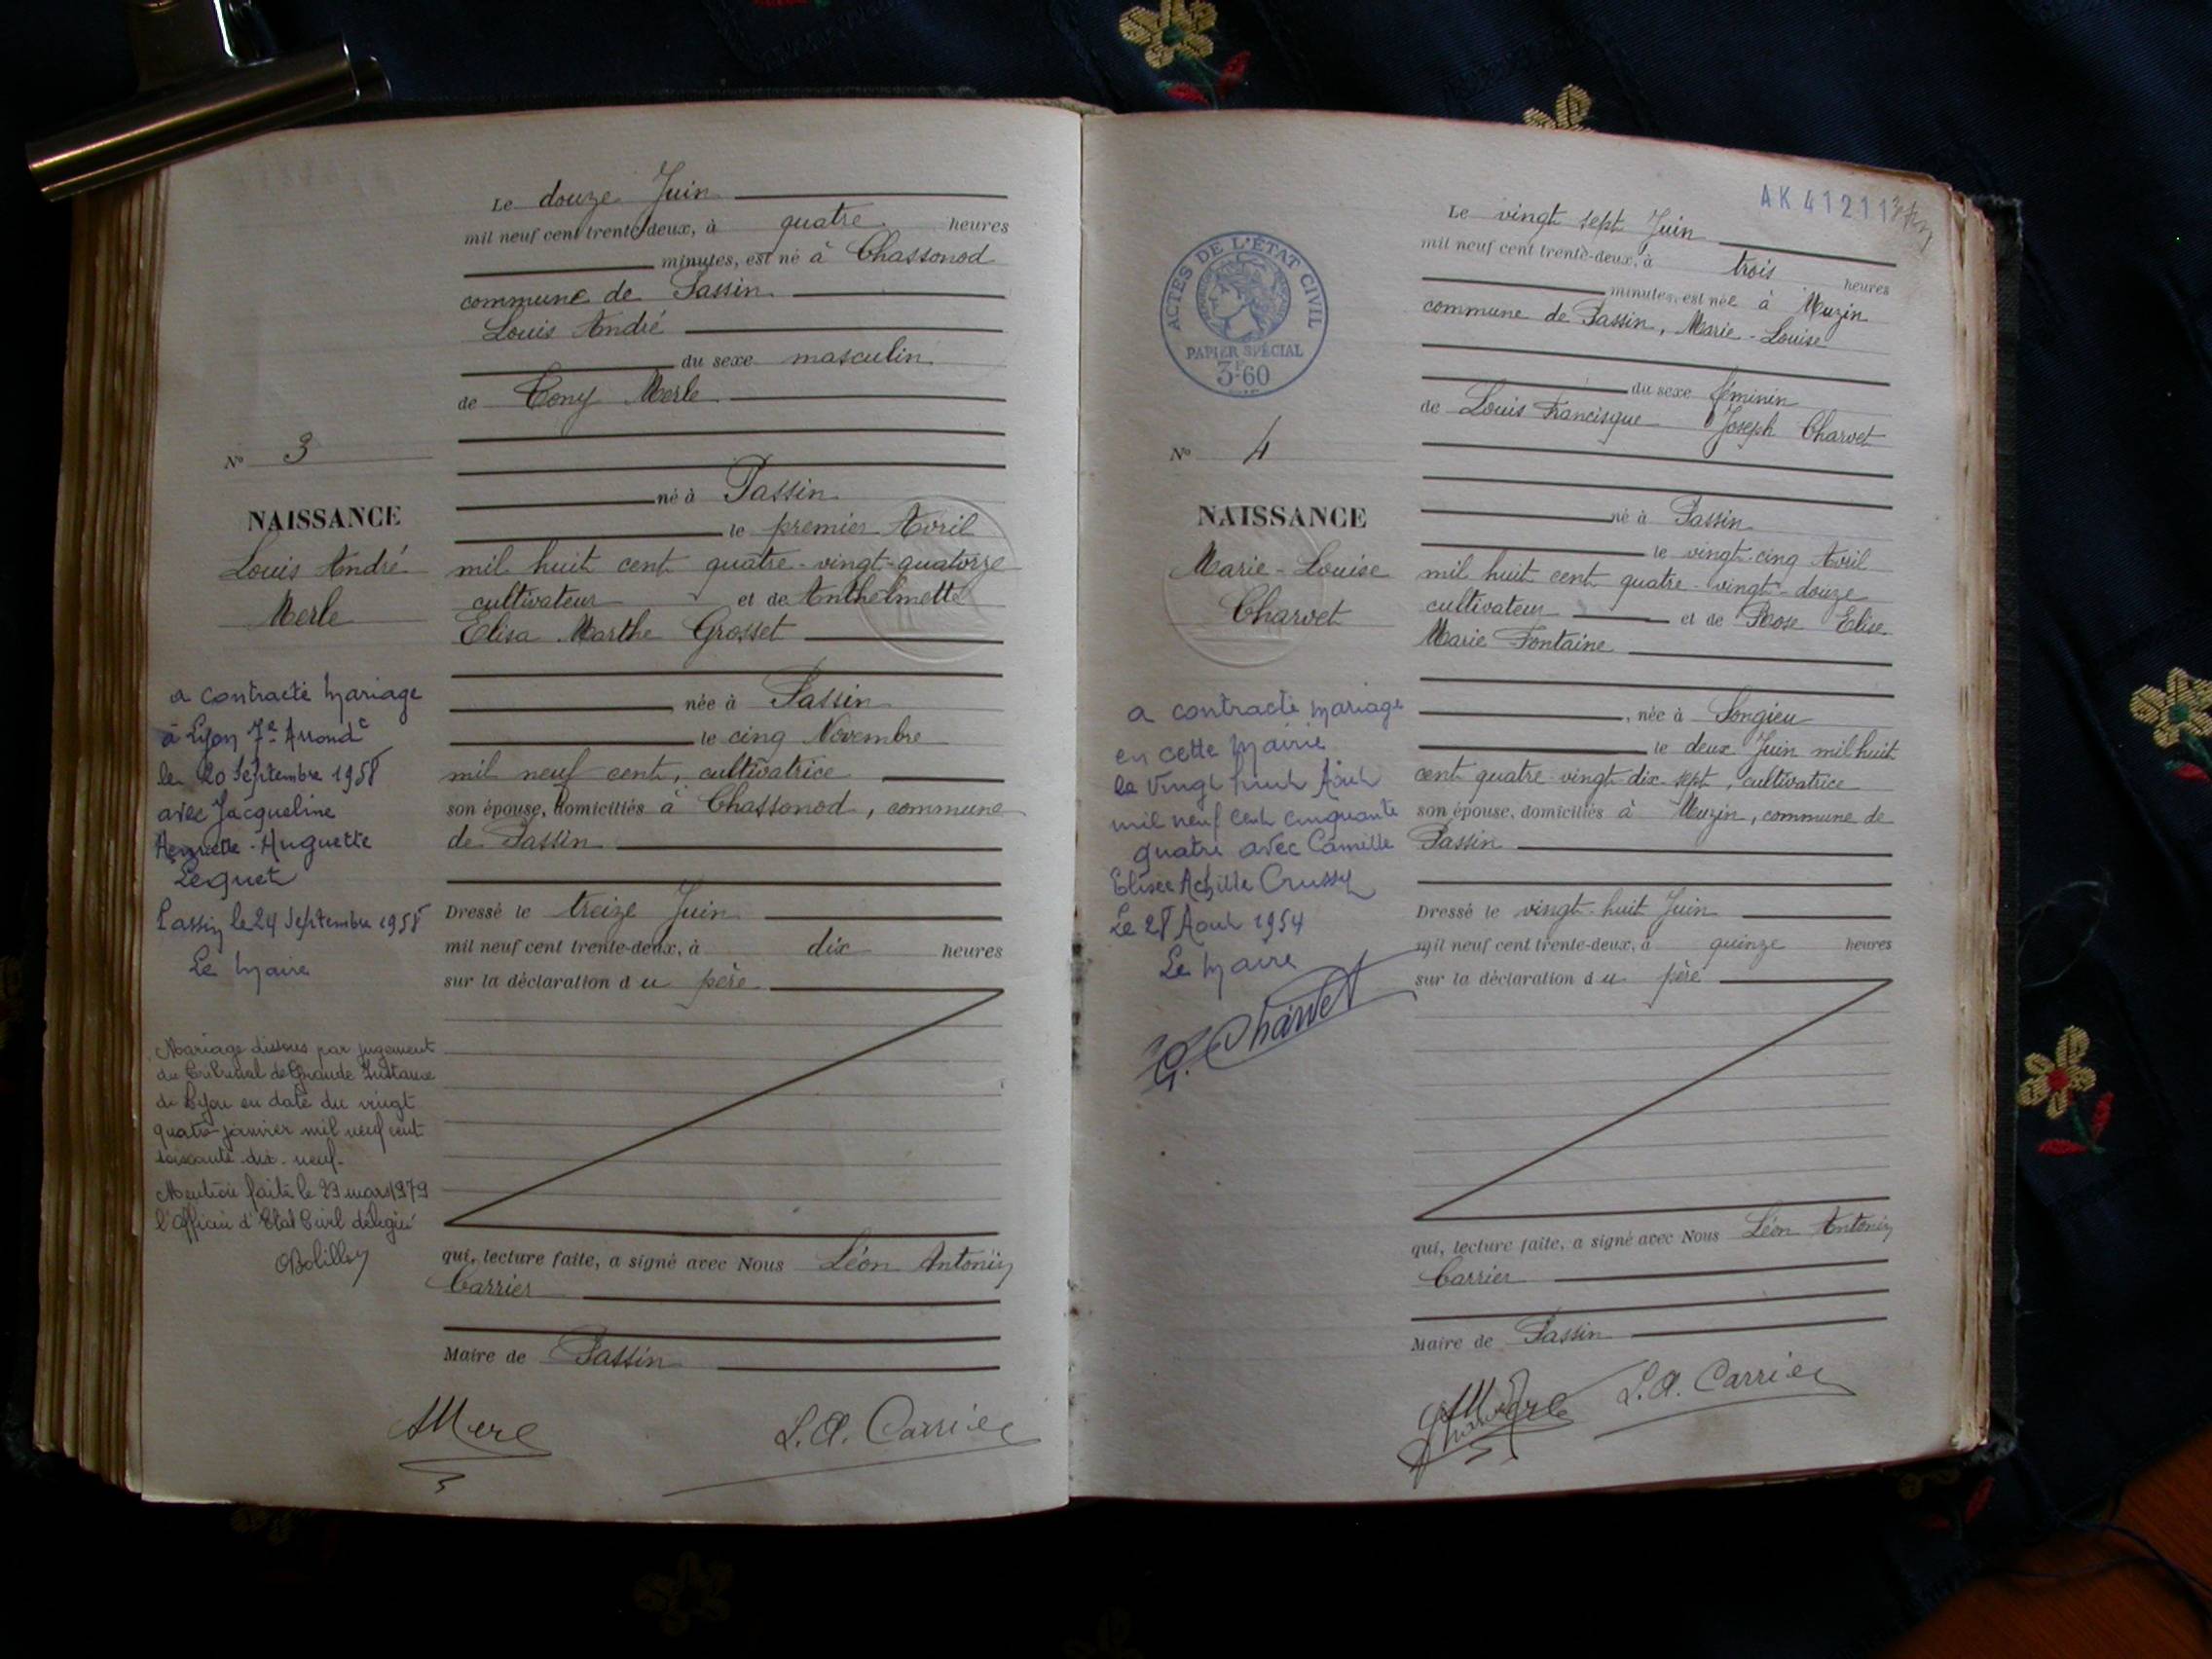 Le douze Juin
mil neuf cent trente-deux, à quatre heures
minutes, est né à Chassonod
commune de Passin
Louis André
du sexe masculin
de Tony Merle
né à Passin
le premier Avril
mil huit cent quatre-vingt-quatorze
cultivateur et de Anthelmette
Elisa Marthe Grosset
née à Passin
le cinq Novembre
mil neuf cent, cultivatrice
son épouse, domiciliés à Chassonod, commune
de Passin
Dressé le treize Juin
mil neuf cent trente-deux, à dix heures
sur la déclaration du père
qui, lecture faite, a signé avec Nous Léon Antonin
Carrier
Maire de Passin
L. A. Carrier
N° 3
NAISSANCE
Louis André
Merle
a contracté mariage
à Lyon 7e Arrondt
le 20 Septembre 1958
avec Jacqueline
Henriette-Huguette
Lequet
Passin le 24 Septembre 1958
Le Maire
Mariage dissous par jugement
du Tribunal de Grande Instance
de Lyon en date du vingt
quatre janvier mil neuf cent
soixante dix-neuf.
Mention faite le 29 mars 1979
l'Officier d'Etat Civil délégué
AK 41211
ACTES DE L'ÉTAT CIVIL
PAPIER SPÉCIAL
3F60
Le vingt sept Juin
mil neuf cent trente-deux, à trois heures
minutes, est née à Muzin
commune de Passin, Marie-Louise
du sexe féminin
de Louis Francisque Joseph Charvet
né à Passin
le vingt-cinq Avril
mil huit cent quatre-vingt-douze
cultivateur et de Rose Elise
Marie Fontaine
, née à Songieu
le deux Juin mil huit
cent quatre-vingt dix-sept, cultivatrice
son épouse, domiciliés à Muzin, commune de
Passin
Dressé le vingt-huit Juin
mil neuf cent trente-deux, à quinze heures
sur la déclaration du père
qui, lecture faite, a signé avec Nous Léon Antonin
Carrier
Maire de Passin
L. A. Carrier
N° 4
NAISSANCE
Marie-Louise
Charvet
a contracté mariage
en cette Mairie
le Vingt huit Août
mil neuf cent cinquante
quatre avec Camille
Elisée Achille Crussy
Le 28 Août 1954
Le Maire
Charvet